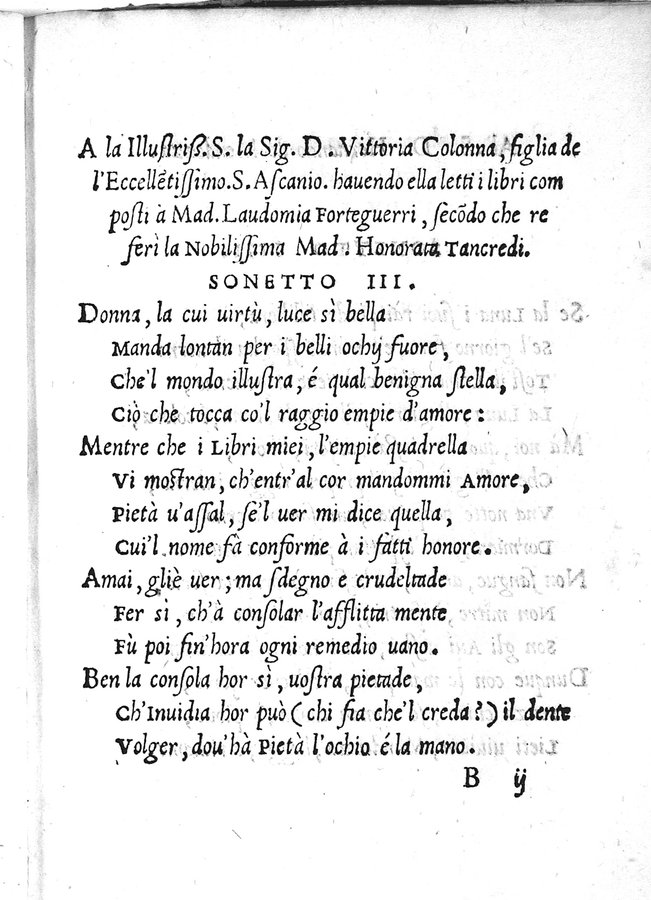 A la Illuſtriß. S. la Sig. D. Vittoria Colonna, figlia de
l'Eccellẽtiſſimo. S. Aſcanio. hauendo ella letti i libri com
poſti à Mad. Laudomia Forteguerri, ſecõdo che re
ferì la Nobiliſſima Mad. Honorata Tancredi.
SONETTO III.
Donna, la cui uirtù, luce sì bella
Manda lontan per i belli ochij fuore,
Che'l mondo illuſtra, é qual benigna ſtella,
Ciò che tocca co'l raggio empie d'amore:
Mentre che i Libri miei, l'empie quadrella
Vi moſtran, ch'entr'al cor mandommi Amore,
Pietà u'aſſal, ſe'l uer mi dice quella,
Cui'l nome fà conforme à i fatti honore.
Amai, gliè uer; ma ſdegno e crudeltade
Fer sì, ch'à conſolar l'afflitta mente
Fù poi fin'hora ogni remedio uano.
Ben la conſola hor sì, uoſtra pietade,
Ch'Inuidia hor può (chi fia che'l creda?) il dente
Volger, dou'hà Pietà l'ochio é la mano.
B ij